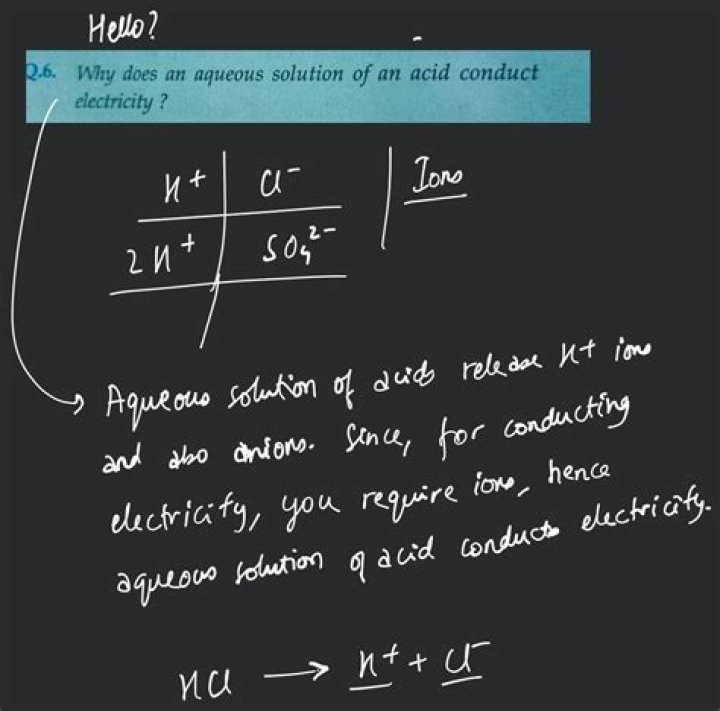 Hello?
Q.6. Why does an aqueous solution of an acid conduct
electricity ?
H+ | Cl- | Ions
2H+ | SO4²-
Aqueous solution of acids release H+ ions
and also anions. Since, for conducting
electricity, you require ions, hence
aqueous solution of acid conducts electricity.
HCl → H+ + Cl-